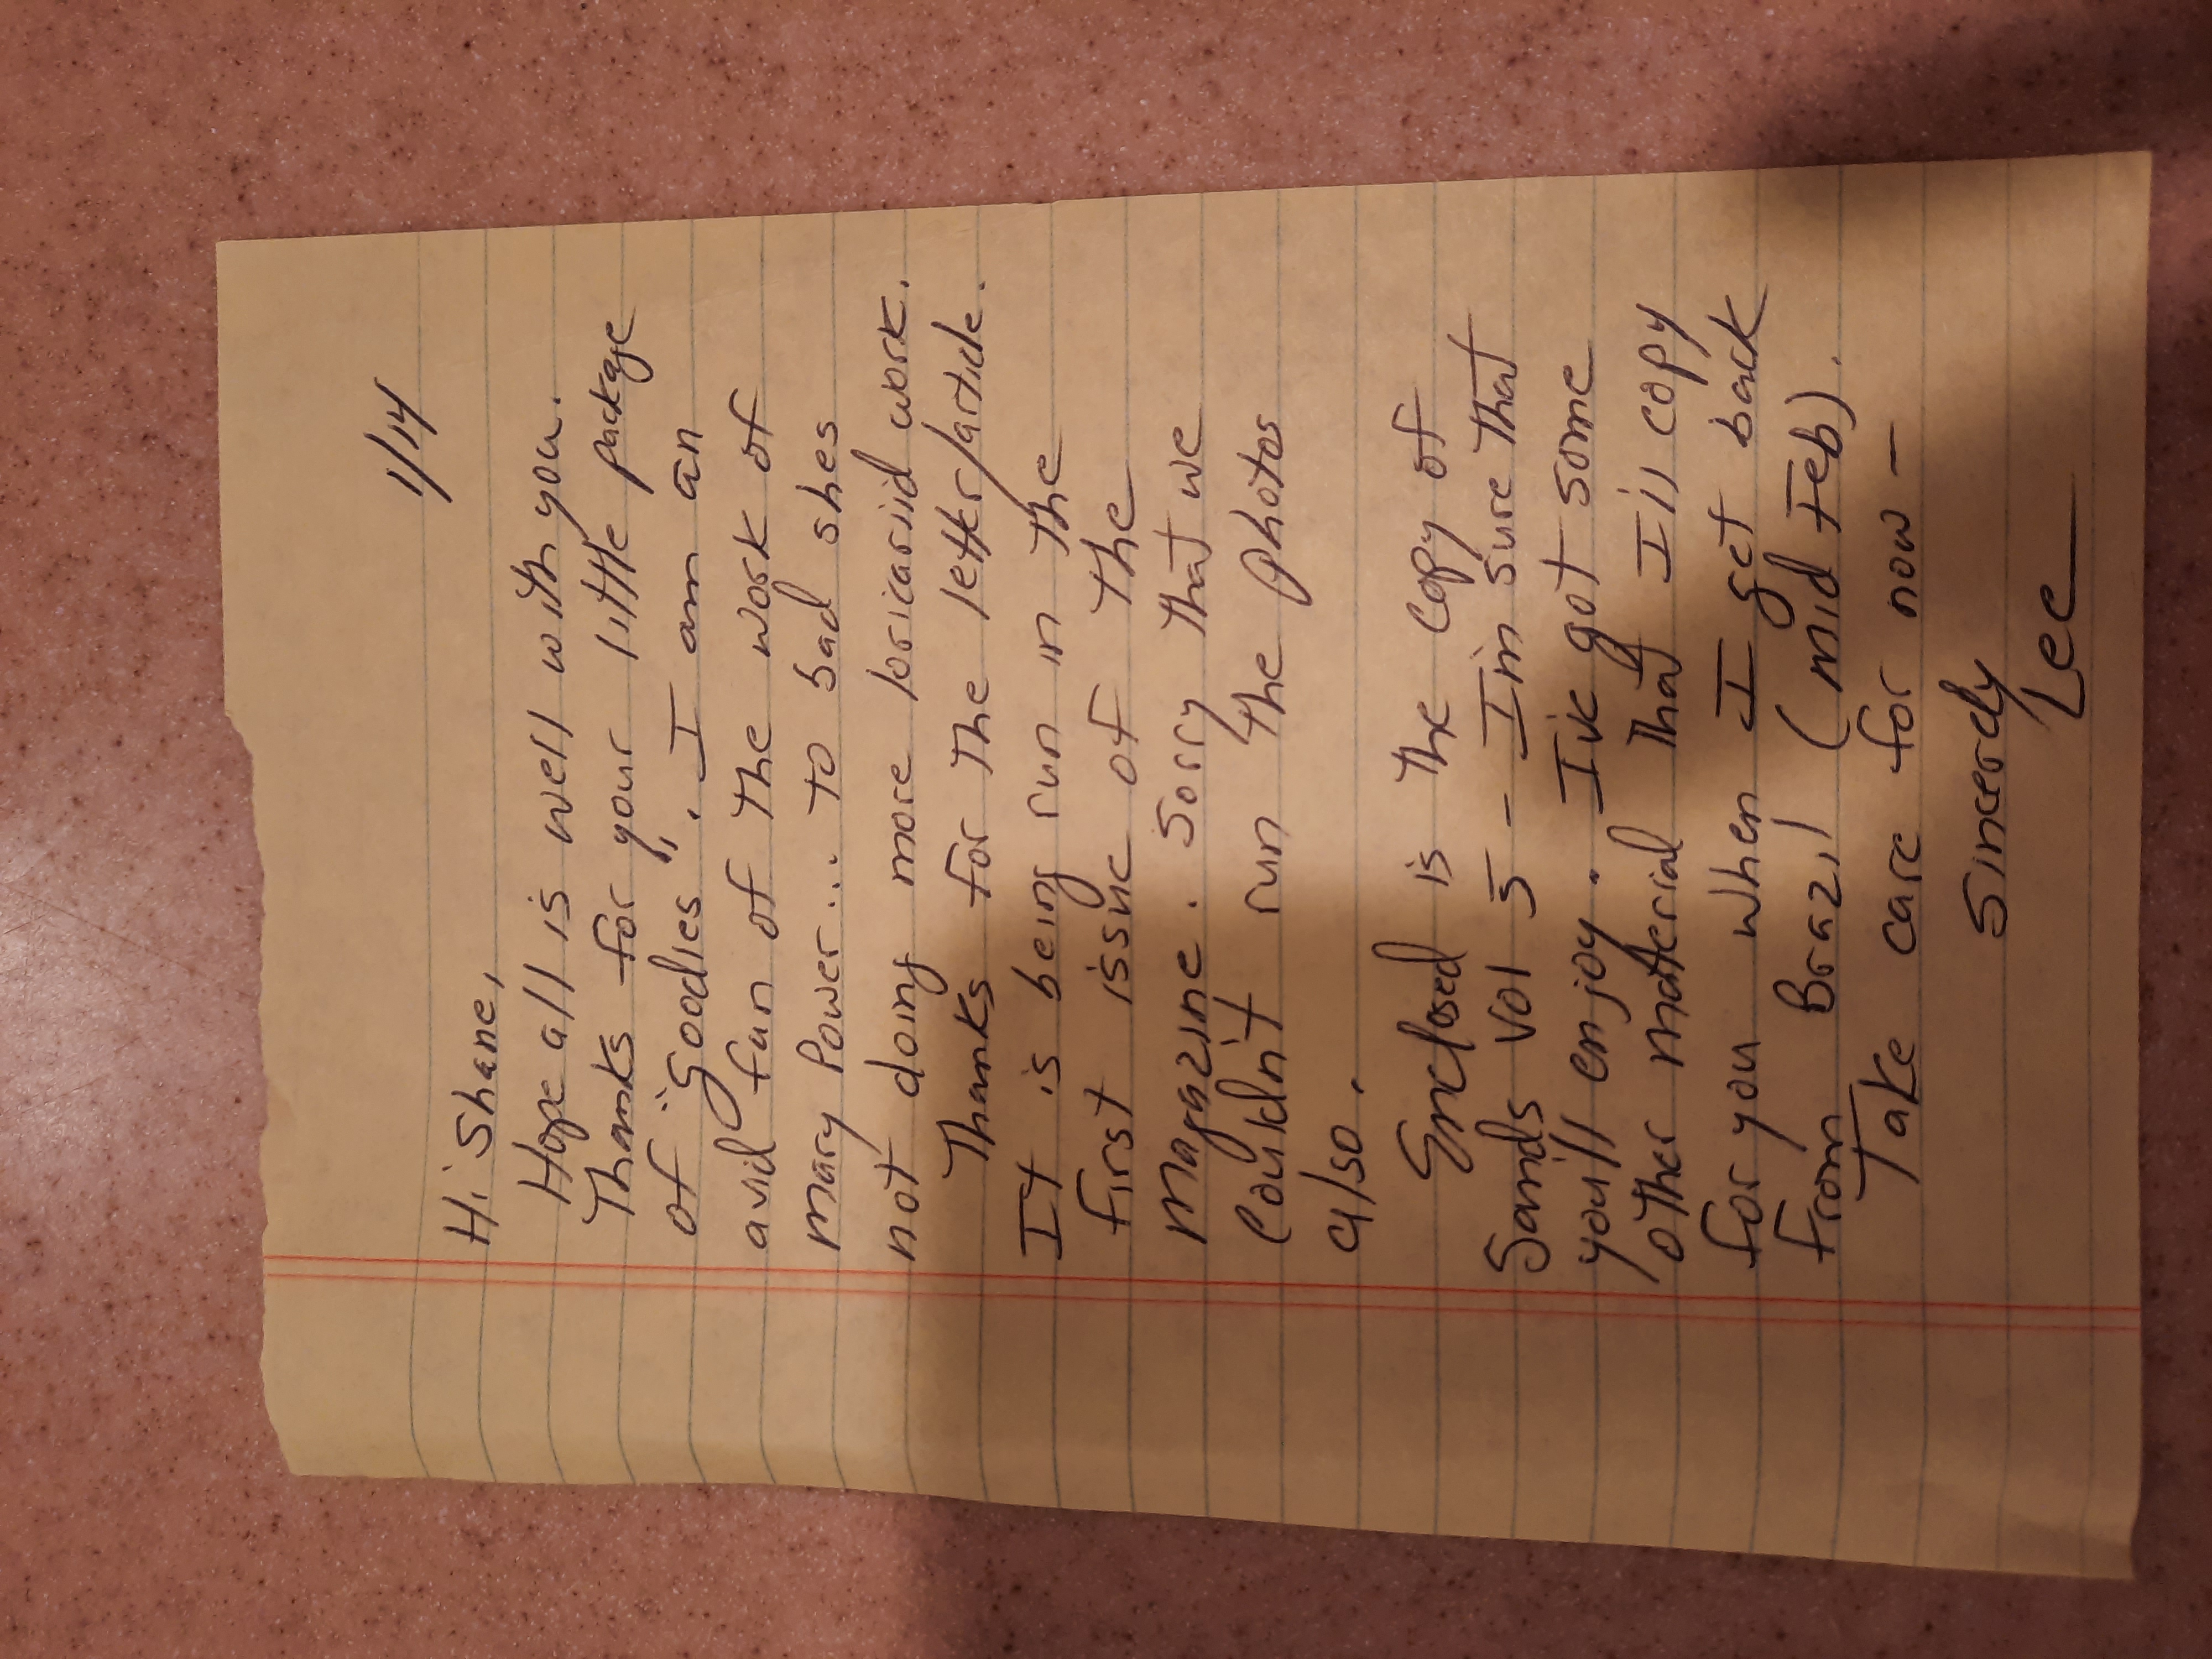 1/14
Hi Shane,
Hope all is well with you.
Thanks for your little package
of "goodies". I am an
avid fan of the work of
Mary Power... to bad shes
not doing more loricariid work.
Thanks for the letter/article.
It is being run in the
first issue of the
magazine. Sorry that we
couldn't run the photos
also.
Enclosed is the copy of
Sands Vol 5 - I'm sure that
you'll enjoy. I've got some
other material that I'll copy
for you when I get back
from Brazil (mid Feb).
Take care for now -
Sincerely
Lee